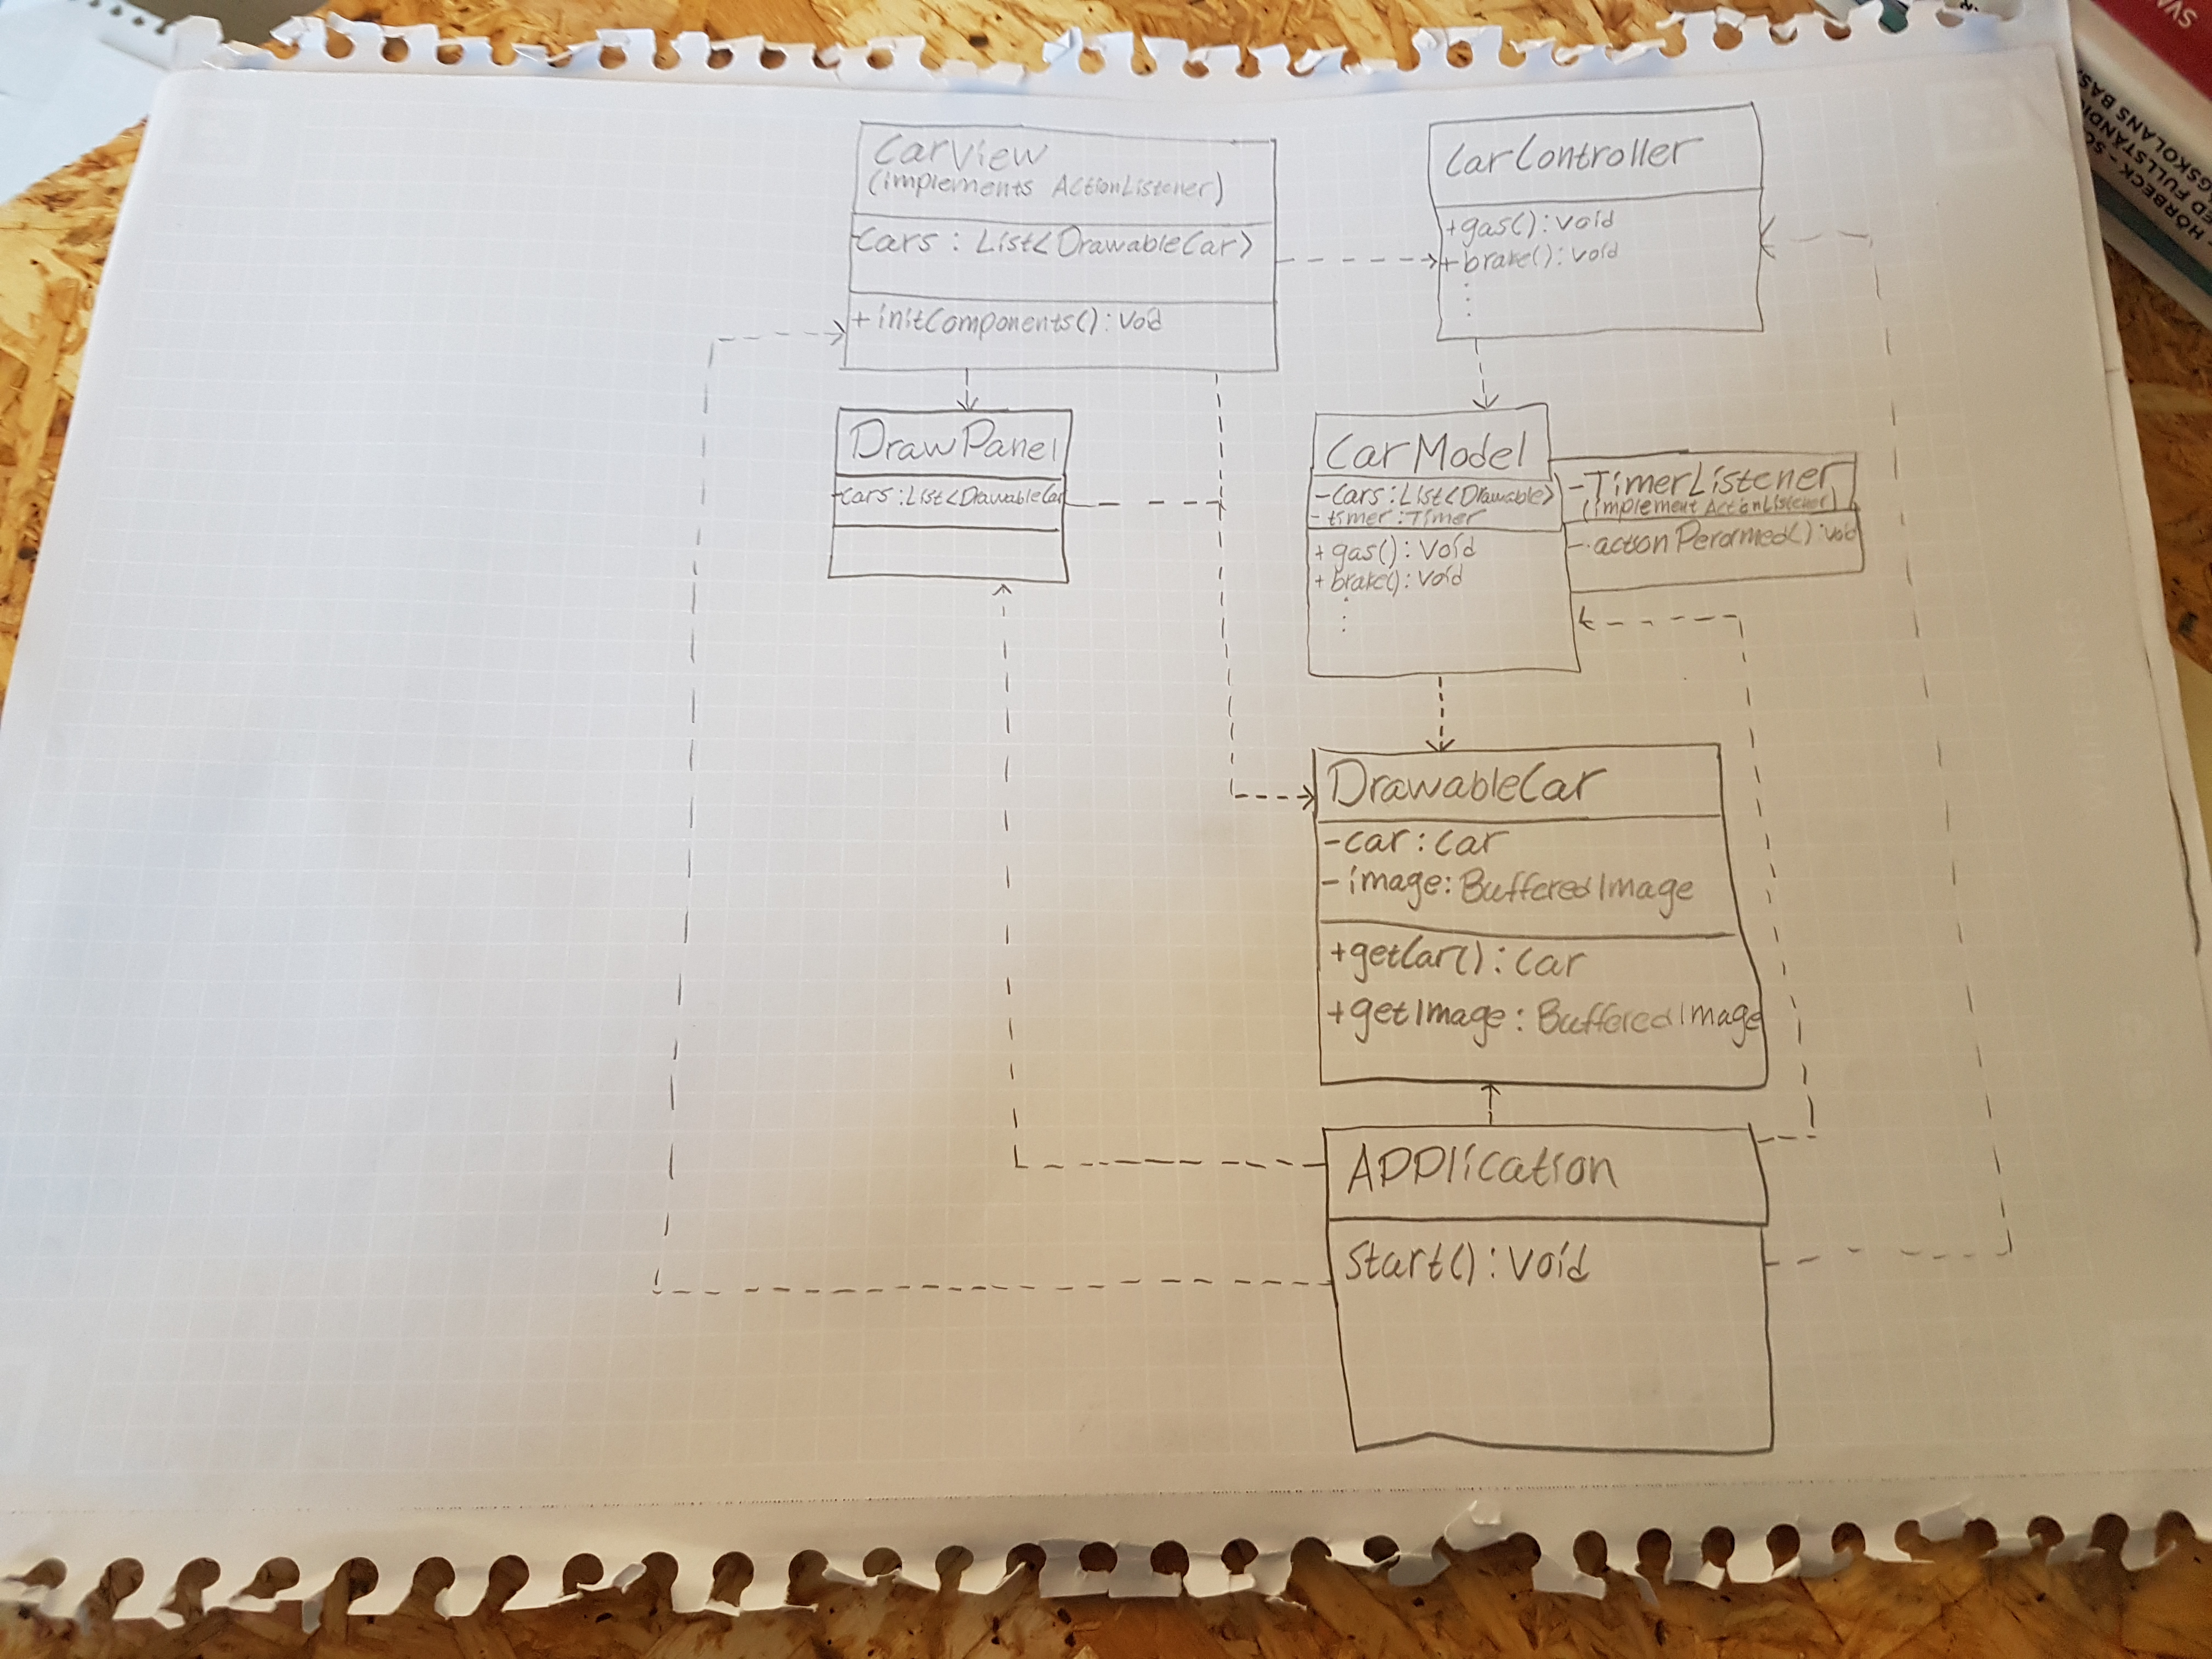 CarView
(implements ActionListener)
-cars : List<DrawableCar>
+ initComponents() : void
CarController
+gas() : void
+ brake() : void
DrawPanel
-cars : List<DrawableCar
CarModel
- cars : List<Drawable>
- timer : Timer
+ gas() : void
+ brake() : void
-TimerListener
(implement ActionListener)
- actionPerormed() : void
DrawableCar
-car : Car
- image : BufferedImage
+getCar() : Car
+getImage : BufferedImage
Application
start() : void
HÖRBECK - SO
ED FULLSTÄNDI
GSKOLANS BAS
SVA